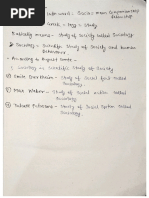 Greek - logy = Study
Basically means - Study of Society called Sociology
Society - Scientific Study of Society and human Behaviour
According to August Comte -
Sociology is Scientific Study of Society
Emile Durkheim - Study of Social fact called Sociology
Max Weber - Study of Social action called Sociology
Talcott Parsons - Study of Social System called Sociology